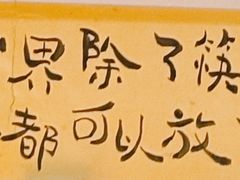 界除了筷
都可以放